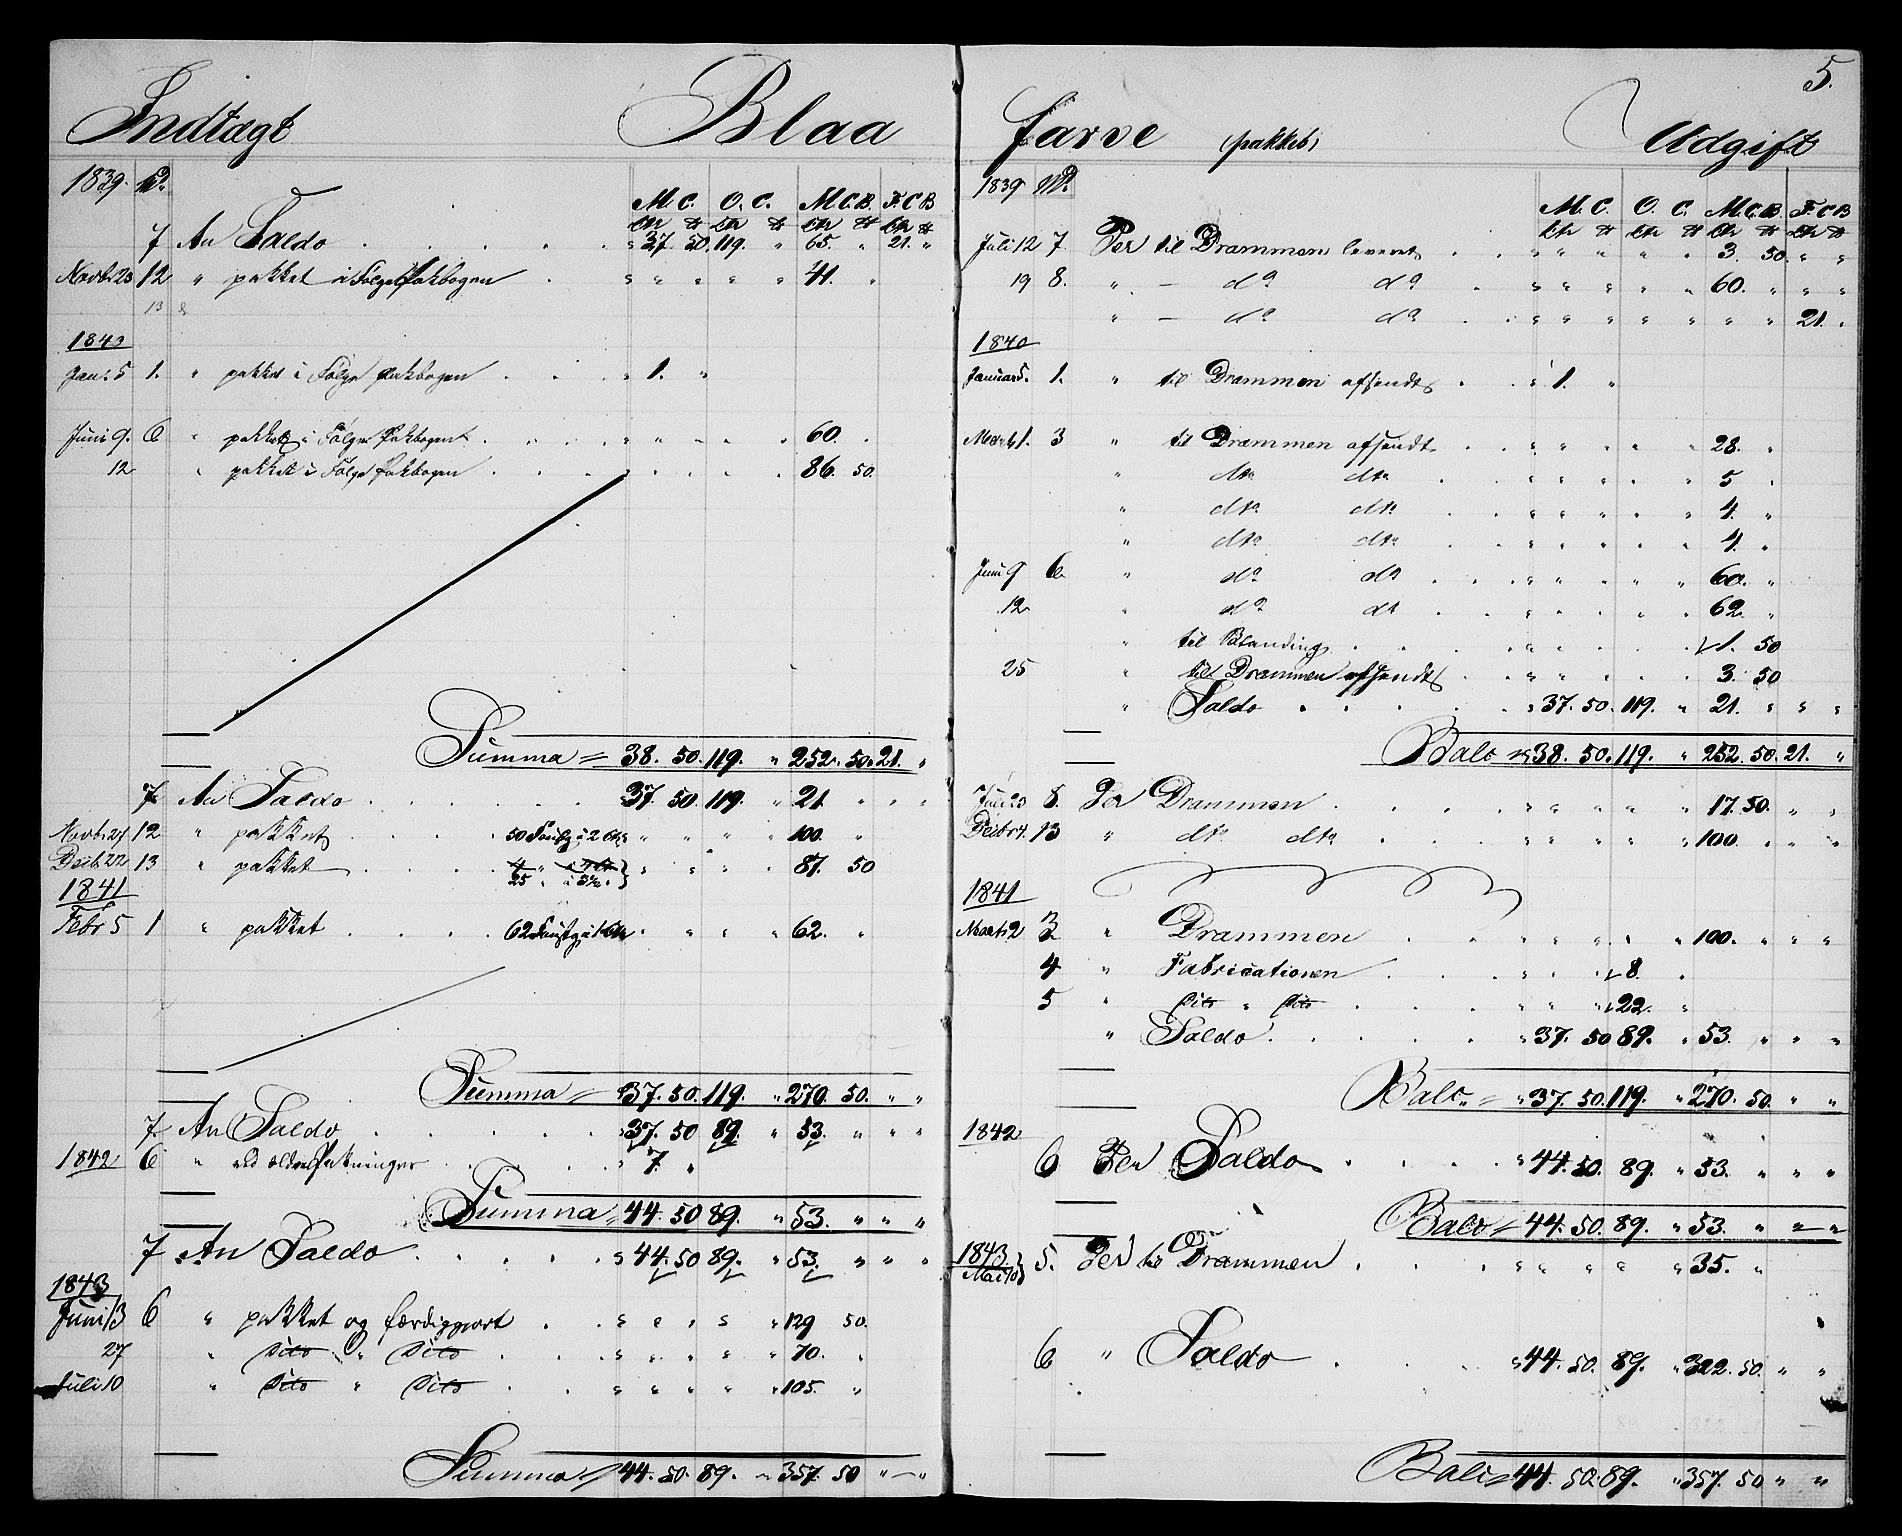 5.
Indtægt Blaa
1839. M.
M. C. O. C. M.C.B. F.C.B
Ctr ℔ Ctr ℔ Ctr ℔ Ctr ℔
7 An Saldo . . . . . " 37. 50. 119. " 65. " 21. "
Novbr 23 12 " pakket i Følge Pakbogen . " " " " 41. "
13
1840
Jan: 5 1. " pakket i Følge Pakbogen . . . " 1. "
Juni 9. 6 " pakket i Følge Pakbogen . . . " " " " 60. "
12 " pakket i Følge Pakbogen . . . . " " " 86. 50.
Summa = 38. 50. 119. " 252. 50. 21. "
7 An Saldo . . . . . . 37. 50. 119. " 21. " " "
Novbr 21 12 " pakket . . . 50 Fustg à 2 Ctr " " " " 100. "
Decbr. 22 13 " pakket . . . 25 " à 3½ " " " " " 87. 50
1841
Febr 5 1 " pakket . . . 62 Fustg à 1 Ctr " " " " 62. "
Summa = 37. 50. 119. " 270. 50. " "
7 An Saldo . . . . . . 37. 50 89. " 53. " " "
1842 6 " ved ældre Pakninger . . . . " 7. "
Summa = 44. 50 89. " 53. " " "
7 An Saldo . . . . . " 44. 50 89. " 53. " " "
1843
Juni 13 6 " pakket og færdiggjort . . " " " " " 129 50.
27 " Dito " Dito . . . " " " " " 70. "
Juli 10 " Dito " Dito . . . " " " " " 105. "
Summa = 44. 50. 89. " 357. 50 " - "
farve (pakket) Udgift
1839 M.
M. C. O. C. M.C.B. F.C.B
Ctr ℔ Ctr ℔ Ctr ℔ Ctr ℔
Juli 12 7 Per til Drammen leveret . . " " " " 3. 50. " "
19 8. " – do do . " " " " 60. " " "
" – do do . . " " " " " " 21. "
1840
Januar 5. 1. " til Drammen afsendt . . " 1. "
Marts 1. 3 " til Drammen afsendt . . " " " " 28. "
" dto dto . . " " " " 5 "
" dto dto . . " " " " 4. "
" dto dto . . " " " " 4. "
Juni 9 6 " do do . . . " " " " 60. "
12 " do do . . . " " " " 62. "
" til Blanding . . . . " " " 1. 50
25 " til Drammen afsendt . . " " " " 3. 50
" Saldo . . . . . " 37. 50. 119. " 21. " " "
Balc = 38. 50. 119. " 252. 50. 21. "
Juli 23 8. Per Drammen . . . . " " " " 17. 50. " "
Decbr 4. 13 " dto dto . . . " " " " 100. " " "
1841
Marts 2 3 " Drammen . . . " " " " 100. " " "
4 " Fabricationen . . . " " 8. "
5 " Dito " Dito . . . " " " 22. "
" Saldo . . . . . " 37. 50 89. " 53. " " "
Balc = " 37. 50. 119. " 270. 50. " "
1842
6 Per Saldo . . . . " 44. 50. 89. " 53. " " "
Balc = 44. 50. 89. " 53. " " "
1843.
Mai 10 5. Per til Drammen . . . . " " " " 35. "
6 " Saldo . . . . " 44. 50. 89. " 322. 50. " "
Balc = 44. 50. 89. " 357. 50 " "